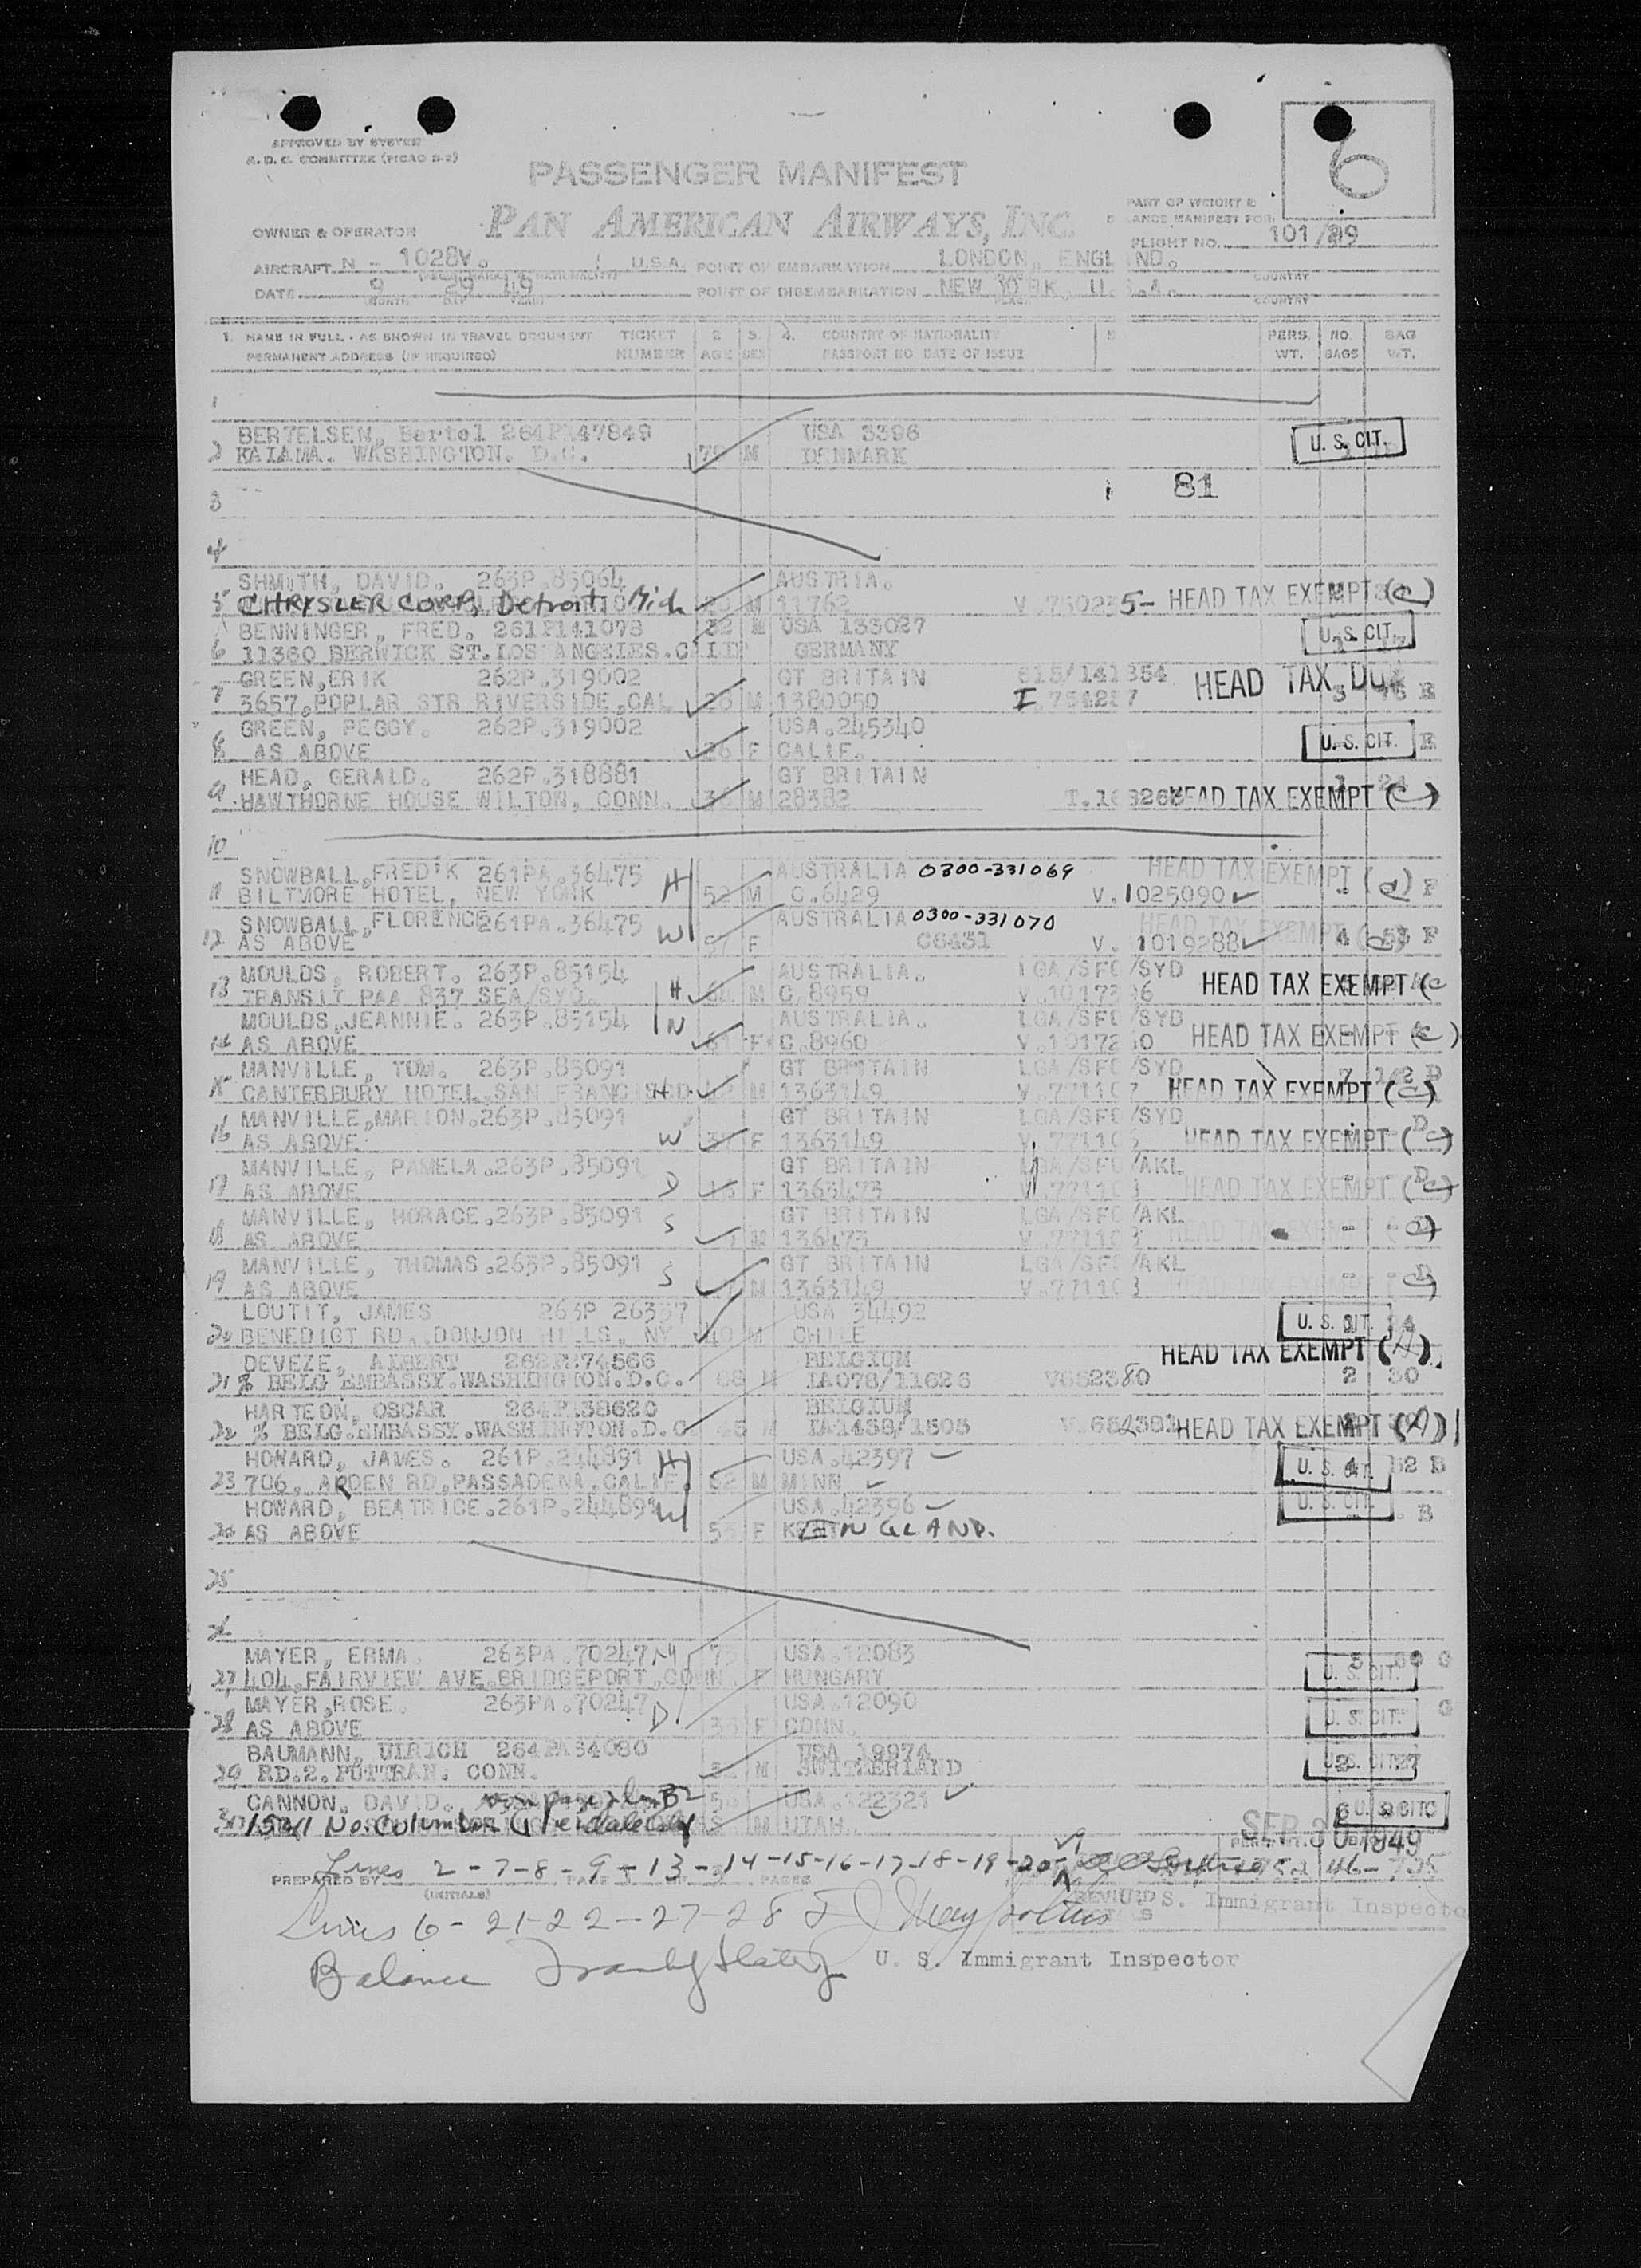 APPROVED BY SYSTEM
A. D. C. COMMITTEE (PICAO S-2)
6
PASSENGER MANIFEST
PAN AMERICAN AIRWAYS, INC.
PART OF WEIGHT &
BALANCE MANIFEST FOR
OWNER & OPERATOR
FLIGHT NO. 101/29
AIRCRAFT N - 1028V. U.S.A. POINT OF EMBARKATION LONDON, ENGLAND.
DATE 9 29 49 POINT OF DISEMBARKATION NEW YORK, U.S.A.
1. NAME IN FULL - AS SHOWN IN TRAVEL DOCUMENT TICKET 2. 3. 4. COUNTRY OF NATIONALITY 5 PERS. NO. BAG
PERMANENT ADDRESS (IF REQUIRED) NUMBER AGE SEX PASSPORT NO DATE OF ISSUE WT. BAGS WT.
1
BERTELSEN, Bertel 264PA47849 USA 3396
2 KALAMA. WASHINGTON. D.C. M DENMARK U. S. CIT.
81
3
4
SHMITH, DAVID. 263P.85064 AUSTRIA.
5 CHRYSLER CORP, Detroit Mich M 11762 HEAD TAX EXEMPT (c)
BENNINGER, FRED. 261P141078 32 M USA 133027 U. S. CIT.
6 11360 BERWICK ST. LOS ANGELES. CALIF GERMANY
GREEN, ERIK 262P.319002 GT BRITAIN
7 3657, POPLAR STR RIVERSIDE, CAL 26 M 1380050 HEAD TAX DUE
GREEN, PEGGY. 262P.319002 USA.245340
8 AS ABOVE 26 F CALIF. U. S. CIT.
HEAD, GERALD. 262P.318881 GT BRITAIN 1 24
9 HAWTHORNE HOUSE WILTON, CONN. M 28382 HEAD TAX EXEMPT (c)
10
SNOWBALL, FREDIK 261PA.36475 AUSTRALIA 0300-331069 HEAD TAX EXEMPT
11 BILTMORE HOTEL, NEW YORK H 52 M C.6429 V.1025090 F
SNOWBALL, FLORENCE 261PA.36475 AUSTRALIA 0300-331070 HEAD TAX EXEMPT
12 AS ABOVE W 57 F C6431 V. 1019288 4 53 F
MOULDS, ROBERT. 263P.85154 AUSTRALIA. LGA/SFO/SYD
13 TRANSIT PAA 837 SEA/SYD. H M C.8959 HEAD TAX EXEMPT (c
MOULDS, JEANNIE. 263P.85154 AUSTRALIA. LGA/SFO/SYD
14 AS ABOVE 61 F C.8960 HEAD TAX EXEMPT (c)
MANVILLE, TOM. 263P.85091 GT BRITAIN LGA/SFO/SYD
15 CANTERBURY HOTEL, SAN FRANCISCO H M 1363149 HEAD TAX EXEMPT (c)
MANVILLE, MARION. 263P.85091 GT BRITAIN LGA/SFO/SYD
16 AS ABOVE W F 1363149 HEAD TAX EXEMPT (c)
MANVILLE, PAMELA. 263P.85091 GT BRITAIN LGA/SFO/AKL
17 AS ABOVE D F 1363473 HEAD TAX EXEMPT (c)
MANVILLE, HORACE. 263P.85091 GT BRITAIN LGA/SFO/AKL
18 AS ABOVE S M 136473
MANVILLE, THOMAS. 263P.85091 GT BRITAIN LGA/SFO/AKL
19 AS ABOVE S M 1363149
LOUTIT, JAMES 263P 26337 USA 34492
20 BENEDICT RD. DONJON HILLS, NY 40 M CHILE U. S. CIT.
DEVEZE, ALBERT 262PA74566 BELGIUM HEAD TAX EXEMPT (A)
21 % BELG EMBASSY. WASHINGTON. D.C. 68 M IA078/11626 V652380 2 30
HARTEON, OSCAR 264P138620 BELGIUM
22 % BELG. EMBASSY. WASHINGTON. D.C 45 M IA1438/1505 V.652381 HEAD TAX EXEMPT (A)
HOWARD, JAMES. 261P.244891 H USA.42397
23 706. ARDEN RD, PASSADENA, CALIF. 62 M MINN U. S. CIT. 52 B
HOWARD, BEATRICE. 261P.244891 W USA.42396 U. S. CIT.
24 AS ABOVE 53 F ENGLAND. B
25
MAYER, ERMA. 263PA.70247 M USA.12083
27 404, FAIRVIEW AVE, BRIDGEPORT, CONN. F HUNGARY U. S. CIT.
MAYER, ROSE. 263PA.70247 D USA.12090
28 AS ABOVE F CONN. U. S. CIT.
BAUMANN, ULRICH 264PA34080 USA 19974
29 RD.2. PUTTRAN. CONN. M SWITZERLAND U. S. CIT.
CANNON, DAVID. USA.122321 U. S. CIT
30 1541 No. Columbus Glendale M UTAH.
SEP 1949
Lines 2-7-8-9-13-14-15-16-17-18-19-20
PREPARED BY (INITIALS) PAGE PAGES
U. S. Immigrant Inspector
Lines 6-21-22-27-28
Balance
U. S. Immigrant Inspector